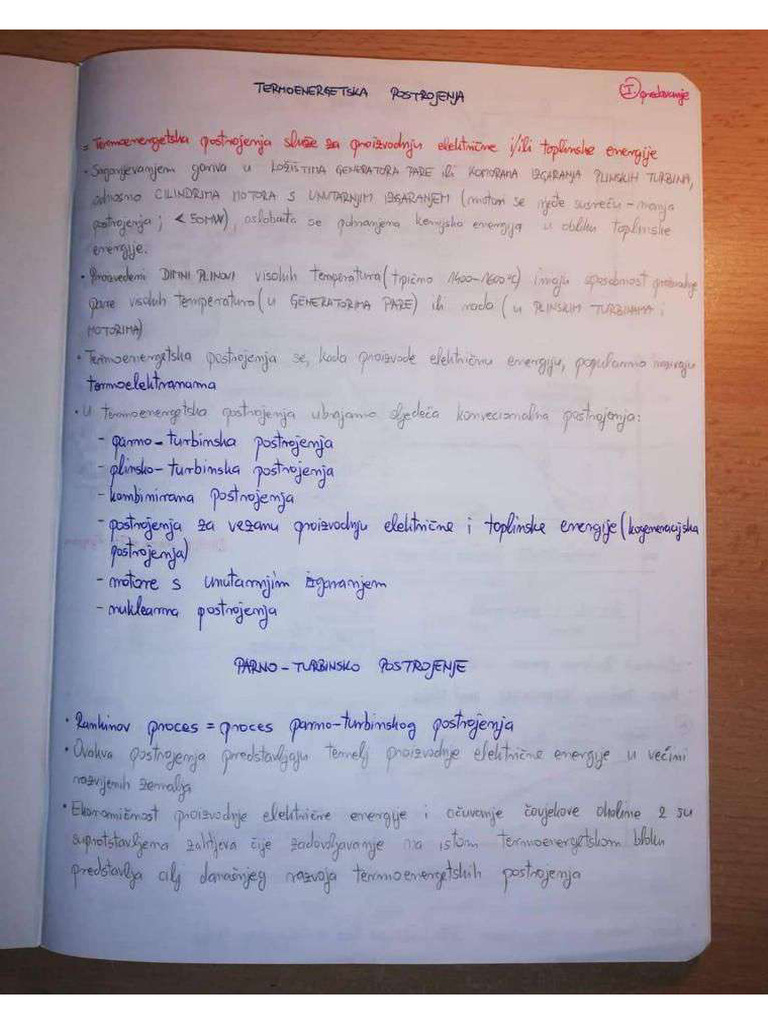 TERMOENERGETSKA POSTROJENJA
I predavanje
= Termoenergetska postrojenja služe za proizvodnju električne i/ili toplinske energije
• Sagorijevanjem goriva u LOŽIŠTIMA GENERATORA PARE ili KOMORAMA IZGARANJA PLINSKIH TURBINA,
odnosno CILINDRIMA MOTORA S UNUTARNJIM IZGARANJEM (motori se rjeđe susreću - manja
postrojenja ; < 50MW), oslobađa se pohranjena kemijska energija u obliku toplinske
energije.
• Proizvedeni DIMNI PLINOVI visokih temperatura (tipično 1400-1600°C) imaju sposobnost proizvodnje
pare visokih temperatura (u GENERATORIMA PARE) ili rada (u PLINSKIM TURBINAMA i
MOTORIMA)
• Termoenergetska postrojenja se, kada proizvode električnu energiju, popularno nazivaju
termoelektranama
• U termoenergetska postrojenja ubrajamo sljedeća konvecionalna postrojenja:
- parno-turbinska postrojenja
- plinsko-turbinska postrojenja
- kombinirana postrojenja
- postrojenja za vezanu proizvodnju električne i toplinske energije (kogeneracijska
postrojenja)
- motore s unutarnjim izgaranjem
- nuklearna postrojenja
PARNO-TURBINSKO POSTROJENJE
• Rankinov proces = proces parno-turbinskog postrojenja
• Ovakva postrojenja predstavljaju temelj proizvodnje električne energije u većini
razvijenih zemalja
• Ekonomičnost proizvodnje električne energije i očuvanje čovjekove okoline 2 su
suprotstavljena zahtjeva čije zadovoljavanje na istom termoenergetskom bloku
predstavlja cilj današnjeg razvoja termoenergetskih postrojenja